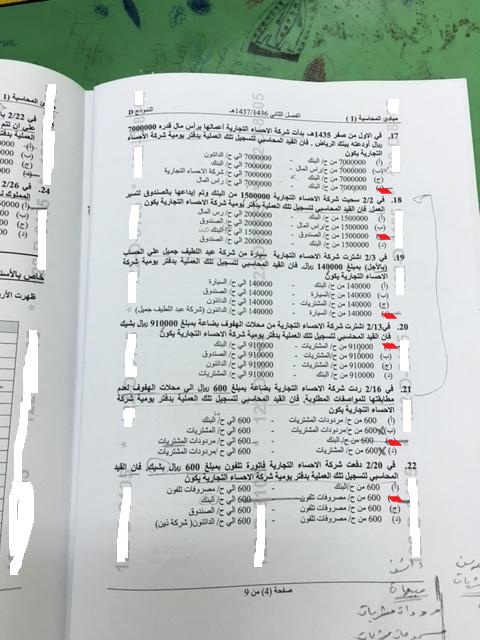 مبادئ المحاسبة ( 1 ) الفصل الثاني 1437/1436هـ النموذج D
17. في الاول من صفر 1435هـ بدأت شركة الاحساء التجارية أعمالها برأس مال قدره 7000000
ريال أودعته ببنك الرياض, فان القيد المحاسبي لتسجيل تلك العملية بدفتر يومية شركة الأحساء
التجارية يكون
(أ) 7000000 من ح/ البنك - 7000000 الي ح/ الدائنون
(ب) 7000000 من ح/راس المال - 7000000 الي ح/ البنك
(ج) 7000000 من ح/ - 7000000 الي ح/ راس المال
7000000 من ح/ البنك - 7000000 الي ح/
18. في 2/2 سحبت شركة الاحساء التجارية 1500000 من البنك وتم إيداعها بالصندوق لتسير
العمل, فان القيد المحاسبي لتسجيل تلك العملية بدفتر يومية شركة الاحساء التجارية يكون
(أ) 1500000 من ح/ البنك - 1500000 الي ح/ راس المال
(ب) 1500000 من ح/راس المال - 1500000 الي ح/ الصندوق
1500000 من ح/ الصندوق - 1500000 الي ح/ البنك
(د) 1500000 من ح/ البنك - 1500000 الي ح/ الصندوق
19. في 2/3 اشترت شركة الاحساء التجارية سيارة من شركة عبد اللطيف جميل علي الحساب
(بالأجل) بمبلغ 140000 ريال, فان القيد المحاسبي لتسجيل تلك العملية بدفتر يومية شركة
الاحساء التجارية يكون
(أ) 140000 من ح/ البنك - 140000 الي ح/ السيارة
(ب) 140000 من ح/السيارة - 140000 الي ح/ البنك
(ج) 140000 من ح/ - 140000 الي ح/ الدائنون
140000 من ح/ السيارة - 140000 الي ح/ الدائنون (شركة عبد اللطيف جميل)
20. في 2/13 اشترت شركة الاحساء التجارية من محلات الهفوف بضاعة بمبلغ 910000 ريال بشيك
فان القيد المحاسبي لتسجيل تلك العملية بدفتر يومية شركة الاحساء التجارية يكون
910000 من ح/ المشتريات - 910000 الي ح/ البنك
(ب) 910000 من ح/المشتريات - 910000 الي ح/ الصندوق
(ج) 910000 من ح/ المشتريات - 910000 الي ح/ الدائنون
(د) 910000 من ح/ البنك - 910000 الي ح/ المشتريات
21. في 2/16 ردت شركة الاحساء التجارية بضاعة بمبلغ 600 ريال الي محلات الهفوف لعدم
مطابقتها للمواصفات المطلوبة, فان القيد المحاسبي لتسجيل تلك العملية بدفتر يومية شركة
الاحساء التجارية يكون
(أ) 600 من ح/ مردودات المشتريات - 600 الي ح/ البنك
(ب) 600 من ح/مردودات المشتريات - 600 الي ح/ المشتريات
600 من ح/ البنك - 600 الي ح/ مردودات المشتريات
(د) 600 من ح/ المشتريات - 600 الي ح/ مردودات المشتريات
22. في 2/20 دفعت شركة الاحساء التجارية فاتورة تلفون بمبلغ 600 ريال بشيك, فان القيد
المحاسبي لتسجيل تلك العملية بدفتر يومية شركة الاحساء التجارية يكون
(أ) 600 من ح/البنك - 600 الي ح/ مصروفات تلفون
600 من ح/ مصروفات تلفون - 600 الي ح/ البنك
(ج) 600 من ح/ مصروفات تلفون - 600 الي ح/ الصندوق
(د) 600 من ح/ مصروفات تلفون - 600 الي ح/ الدائنون( شركة زين)
صفحة (4) من 9
مردودات مشتريات
مبادئ المحاسبة ( 1 )
في 2/22
علي ان تتم
العملية بدفتر
(أ)
(ب)
(ج)
(د)
24. في 2/26
المملوك
(أ)
(ب)
(ج)
(د)
خاص بالأسئلة
ظهرت الأر